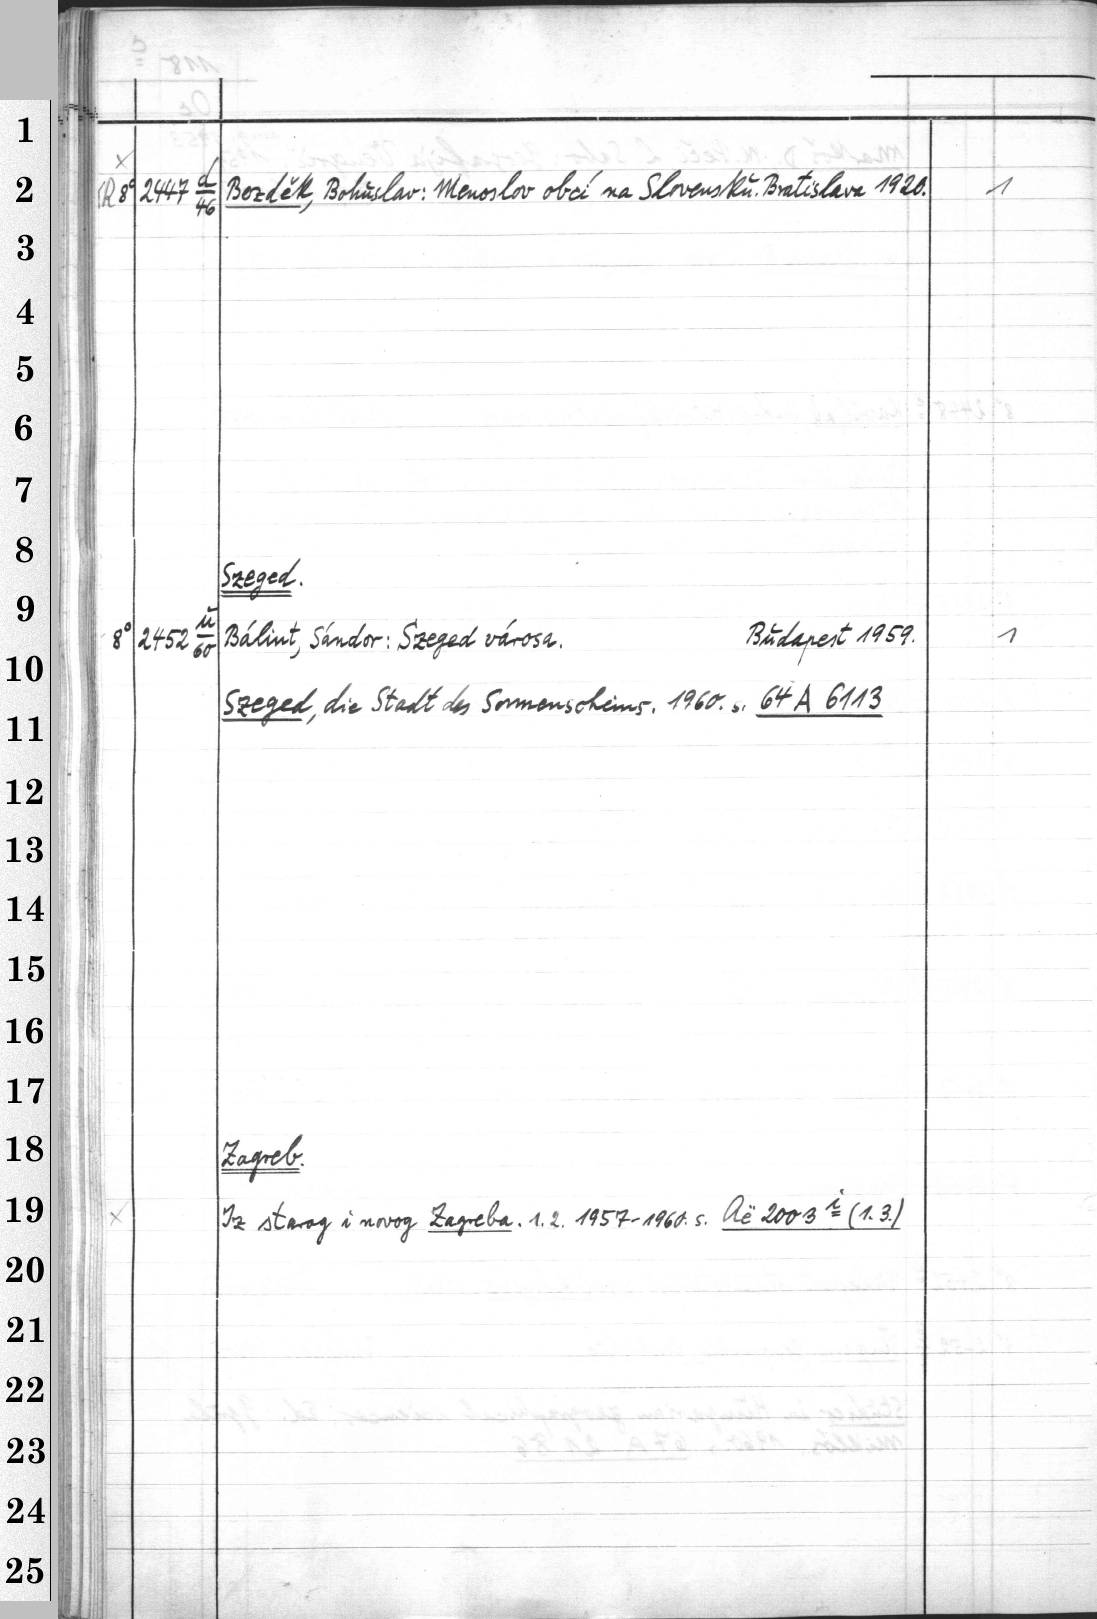 1
×
2 R 8° 2447 d/46 Bozděk, Bohuslav: Menoslov obcí na Slovensku. Bratislava 1920. 1
3
4
5
6
7
8
Szeged.
9
8° 2452 u/60 Bálint, Sándor: Szeged városa. Budapest 1959. 1
10
Szeged, die Stadt des Sonnenscheins. 1960. s. 64 A 6113
11
12
13
14
15
16
17
18 Zagreb.
19 × Iz starog i novog Zagreba. 1.2. 1957-1960. s. Aë 2003 i (1.3.)
20
21
22
23
24
25